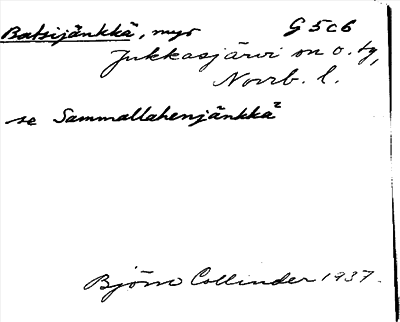 Batsijänkkä, myr G5c6
Jukkasjärvi sn o. tg,
Norrb. l.
se Sammallahenjänkkä²
Björn Collinder 1937.